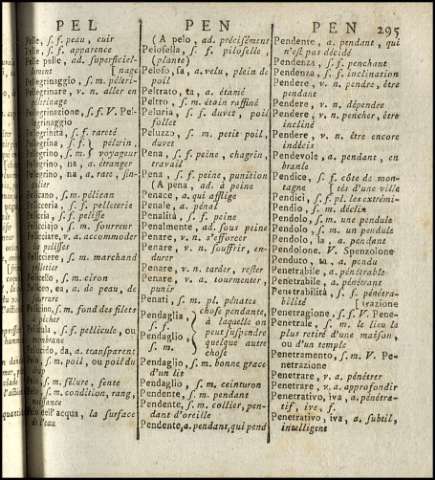 PEL
PEN
PEN 295
Pelle, s. f. peau, cuir
s. f. apparence
Pelle pelle, ad. superficiel-
lement [nage
Pellegrinaggio, s. m. péleri-
Pellegrinare, v. n. aller en
pélerinage
Pellegrinazione, s. f. V. Pel-
legrinaggio
Pellegrinità, s. f. rareté
Pellegrina, s. f. } pélerin,
Pellegrino, s. m. } voyageur
Pellegrino, na, a. étranger
Pellegrino, na, a. rare, sin-
gulier
Pellicano, s. m. pélican
Pelliceria, s. f. pelleterie
Pelliccia, s. f. pelisse
Pellicciajo, s. m. fourreur
Pellicciare, v. a. accommoder
pelisses
Pellicciere, s. m. marchand
pelletier
Pellicello, s. m. ciron
Pelliceo, ea, a. de peau, de
fourrure
Pellicino, s. m. fond des filets
à pêcher
Pellicula, s. f. pellicule, ou
membrane
Pellucido, da, a. transparent
Pelo, s. m. poil, ou poil du
Pelo, s. m. fêlure, fente
Pelo, s. m. condition, rang,
naissance
Pelo dell'acqua, la surface
de l'eau
(A pelo, ad. précisément
Pelosella, s. f. piloselle,
(plante)
Peloso, sa, a. velu, plein de
poil
Peltrato, ta, a. étamé
Peltro, s. m. étain raffiné
Peluria, s. f. duvet, poil
follet
Peluzzo, s. m. petit poil,
duvet
Pena, s. f. peine, chagrin,
travail
Pena, s. f. peine, punition
(A pena, ad. à peine
Penace, a. qui afflige
Penale, a. pénal
Penalità, s. f. peine
Penalmente, ad. sous peine
Penare, v. n. s'efforcer
Penare, v. n. souffrir, en-
durer
Penare, v. n. tarder, rester
Penare, v. a. tourmenter,
punir
Penati, s. m. pl. pénates
Pendaglia, s. f.
Pendaglio, s. m.
} chose pendante,
à laquelle on
peut suspendre
quelque autre
chose
Pendaglio, s. m. bonne grace
d'un lit
Pendaglio, s. m. ceinturon
Pendente, s. m. pendant
Pendente, s. m. collier, pen-
dant d'oreille
Pendente, a. pendant, qui pend
Pendente, a. pendant, qui
n'est pas décidé
Pendenza, s. f. penchant
Pendenza, s. f. inclination
Pendere, v. n. pendre, être
pendant
Pendere, v. n. dépendre
Pendere, v. n. pencher, être
incliné
Pendere, v. n. être encore
indécis
Pendevole, a. pendant, en
branle
Pendice, s. f. côte de mon-
tagne [tés d'une ville
Pendici, s. f. pl. les extrémi-
Pendio, s. m. déclin
Pendolo, s. m. une pendule
Pendolo, s. m. un pendule
Pendolo, la, a. pendant
Pendolone. V. Spenzolone
Penduto, ta, a. pendu
Penetrabile, a. pénétrable
Penetrabile, a. pénétrant
Penetrabilità, s. f. pénétra-
bilité [trazione
Penetragione, s. f. V. Pene-
Penetrale, s. m. le lieu le
plus retiré d'une maison,
ou d'un temple
Penetramento, s. m. V. Pe-
netrazione
Penetrare, v. a. pénétrer
Penetrare, v. a. approfondir
Penetrativo, iva, a. pénétra-
tif, ive, f.
Penetrativo, iva, a. subtil,
intelligent